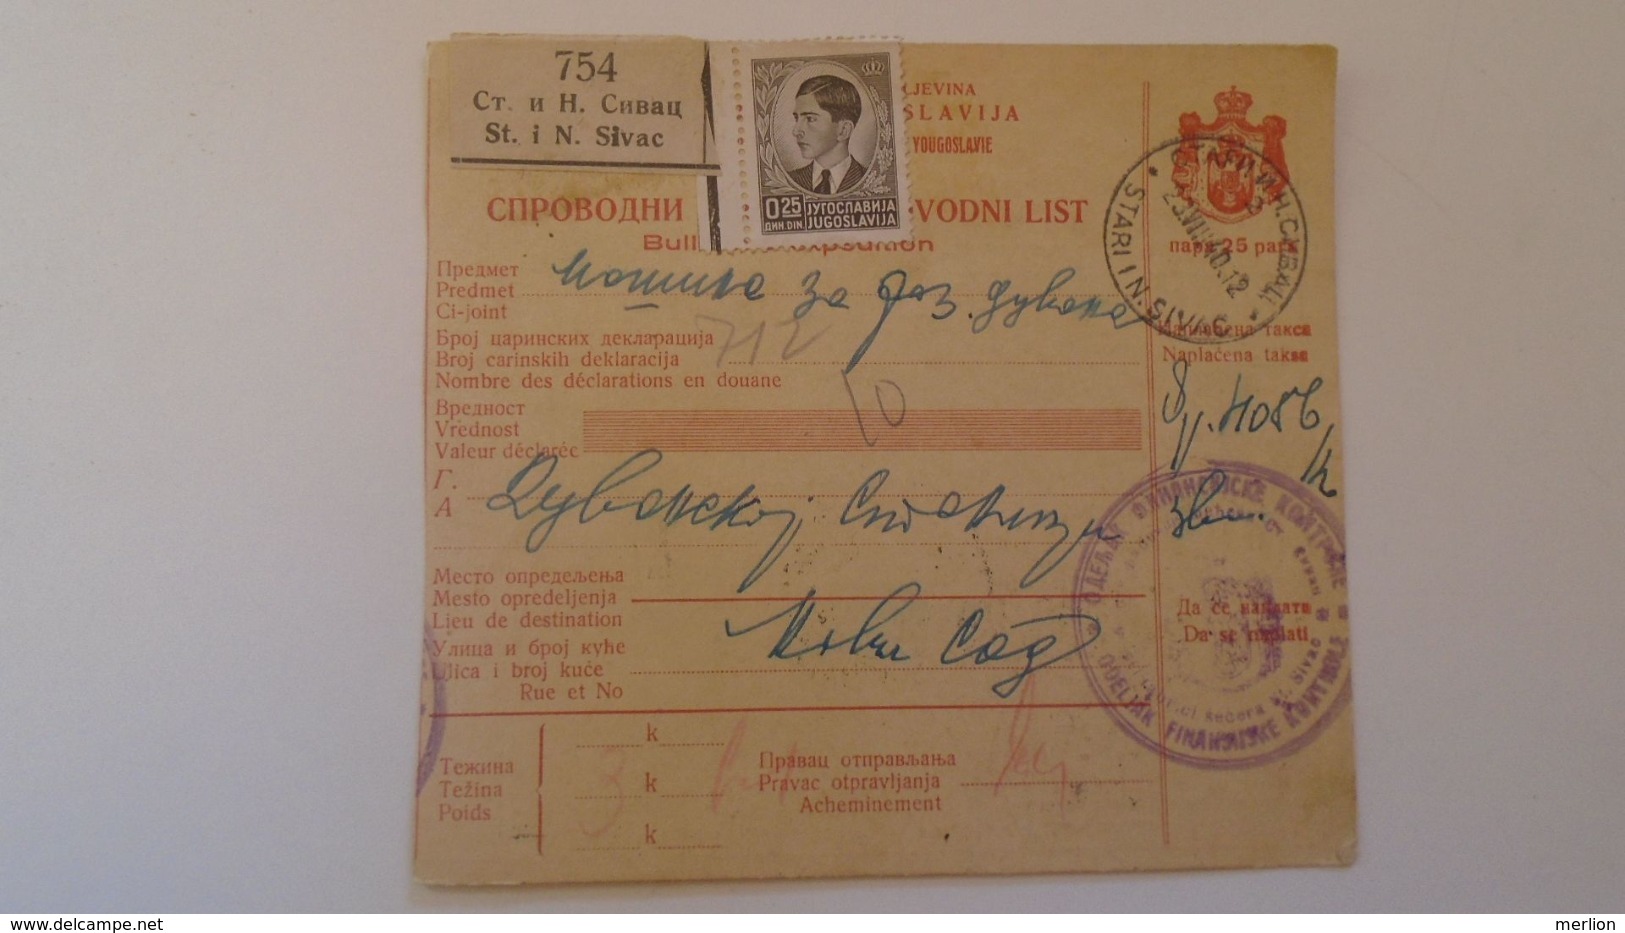 754
Ст. и Н. Сивац
St. i N. Sivac
JEVINA
SLAVIJA
YOUGOSLAVIE
0.25
ДИН. DIN.
ЈУГОСЛАВИЈА
JUGOSLAVIJA
СПРОВОДНИ VODNI LIST
Bull
пара 25 para
STARI I N. SIVAC
Предмет
Predmet
Ci-joint
за дувана
712
Број царинских декларација
Broj carinskih deklaracija
Nombre des déclarations en douane
Наплаћена такса
Naplaćena taksa
10
Вредност
Vrednost
Valeur déclarée
Г.
A
Дуванској Станици
Место опредељења
Mesto opredeljenja
Lieu de destination
Нови Сад
Улица и број куће
Ulica i broj kuće
Rue et No
Да се наплати
Da se naplati
ОДЕЉАК ФИНАНСИЈСКЕ КОНТРОЛЕ
ODELJAK FINANSIJSKE KONTROLE
Тежина
Težina
Poids
k
3 k
k
Правац отправљања
Pravac otpravljanja
Acheminement
merlion